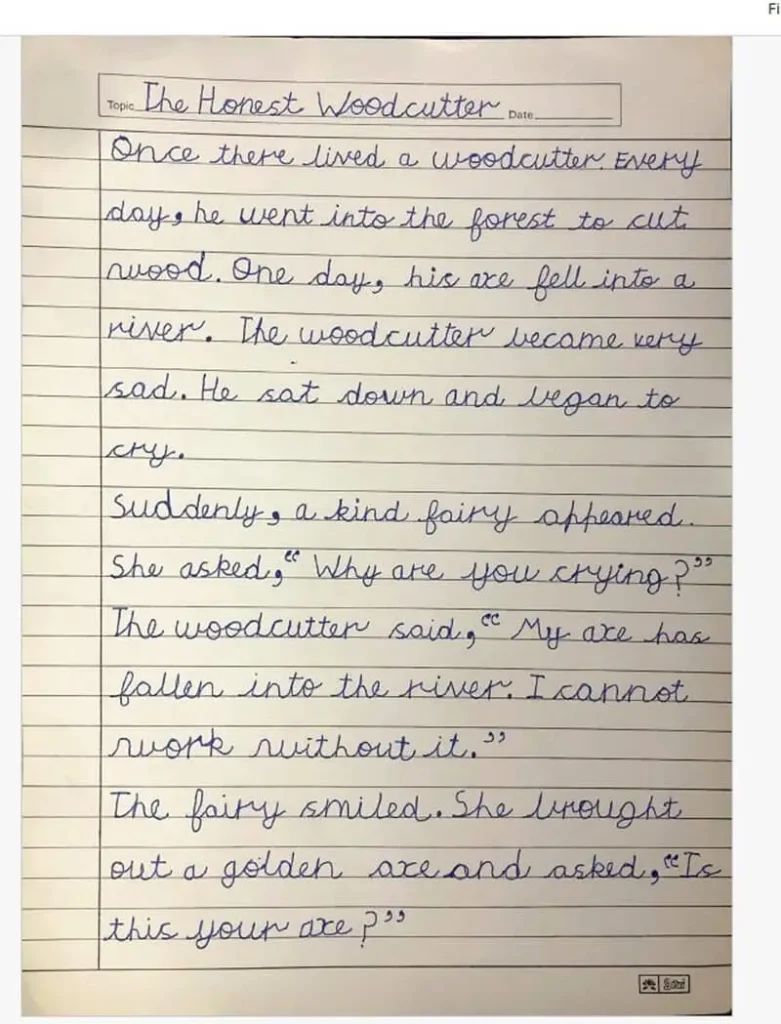 Fi
Topic The Honest Woodcutter Date
Once there lived a woodcutter. Every
day, he went into the forest to cut
wood. One day, his axe fell into a
river. The woodcutter became very
sad. He sat down and began to
cry.
Suddenly, a kind fairy appeared.
She asked, “Why are you crying?”
The woodcutter said, “My axe has
fallen into the river. I cannot
work without it.”
The fairy smiled. She brought
out a golden axe and asked, “Is
this your axe?”